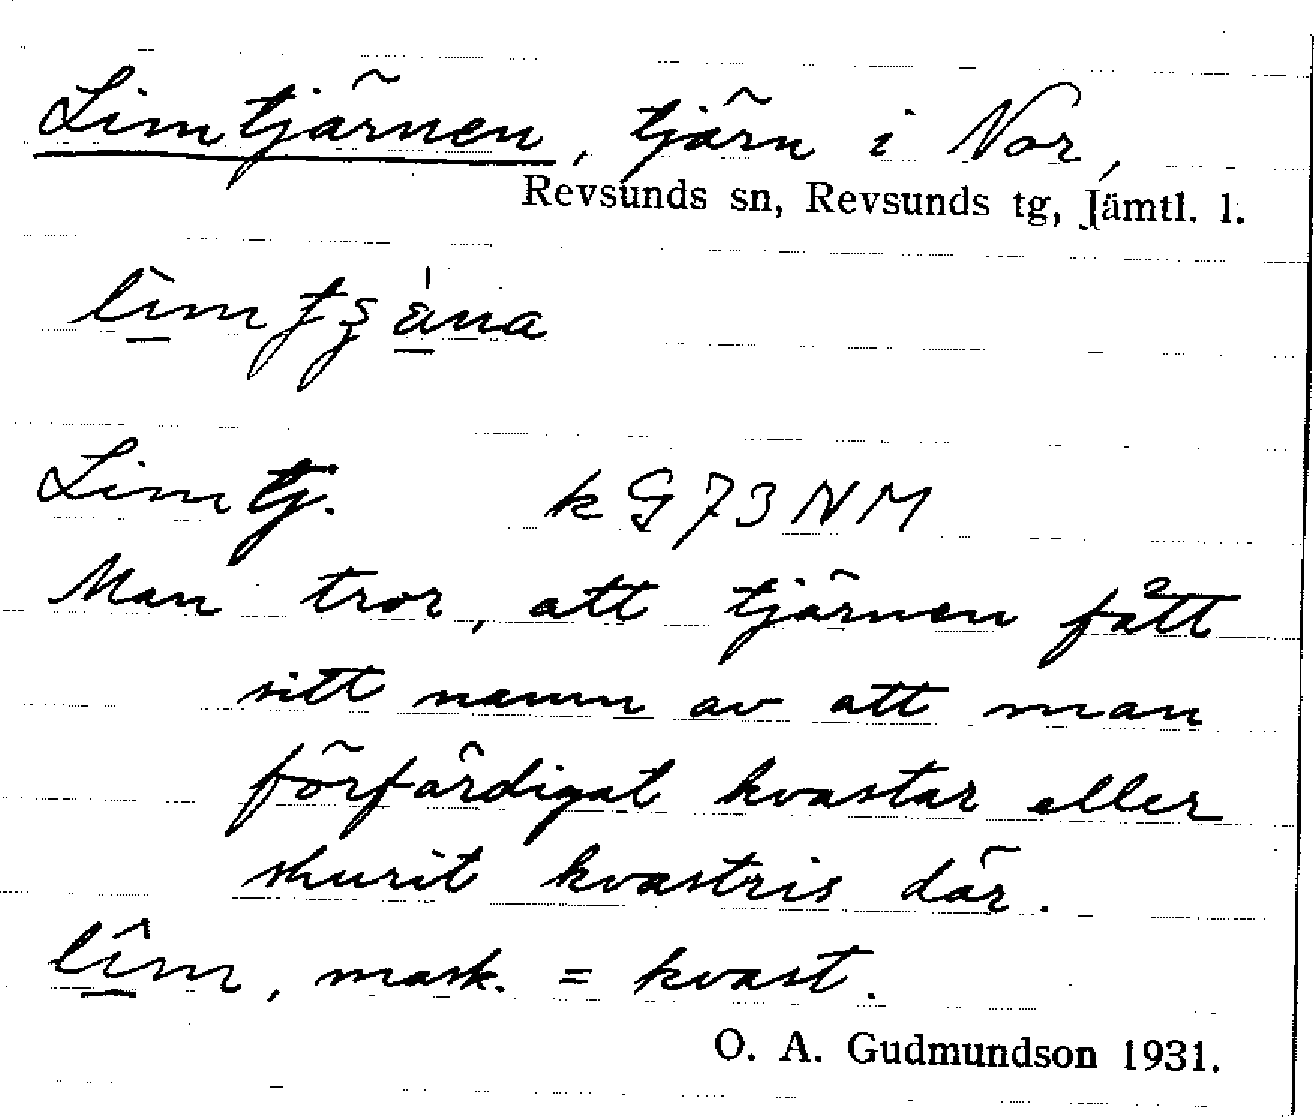 Limtjärnen, tjärn i Nor,
Revsunds sn, Revsunds tg, Jämtl. l.
Limtj. k G 73 NM
Man tror, att tjärnen fått
sitt namn av att man
förfärdigat kvastar eller
skurit kvastris där.
lîm, mask. = kvast.
O. A. Gudmundson 1931.